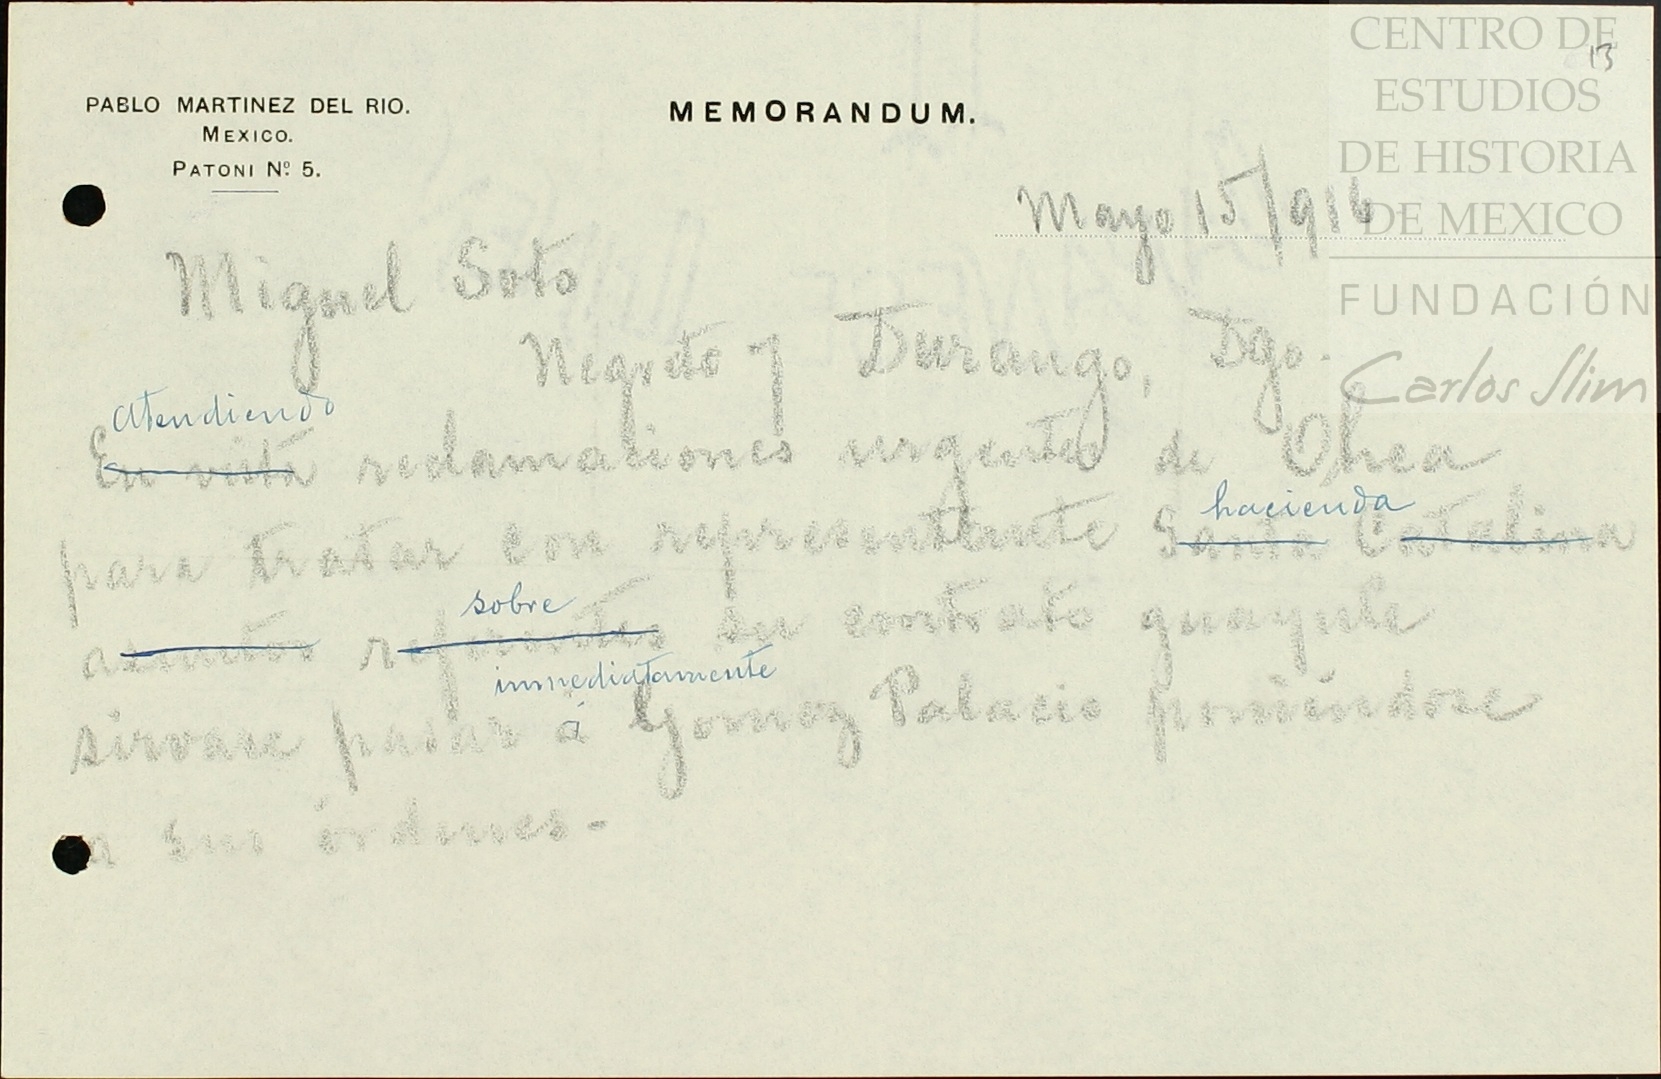 CENTRO DE
ESTUDIOS
DE HISTORIA
DE MEXICO
FUNDACIÓN
Carlos Slim
13
PABLO MARTINEZ DEL RIO.
MEXICO.
PATONI Nº 5.
MEMORANDUM.
Mayo 15/916
Miguel Soto
Negrete y Durango, Dgo.
atendiendo
En vista reclamaciones urgentes de Ohea
hacienda
para tratar con representante Santa Catalina
sobre
asuntos referentes su contrato guayule
inmediatamente
sirvase pasar á Gomez Palacio poniéndose
a sus órdenes.-